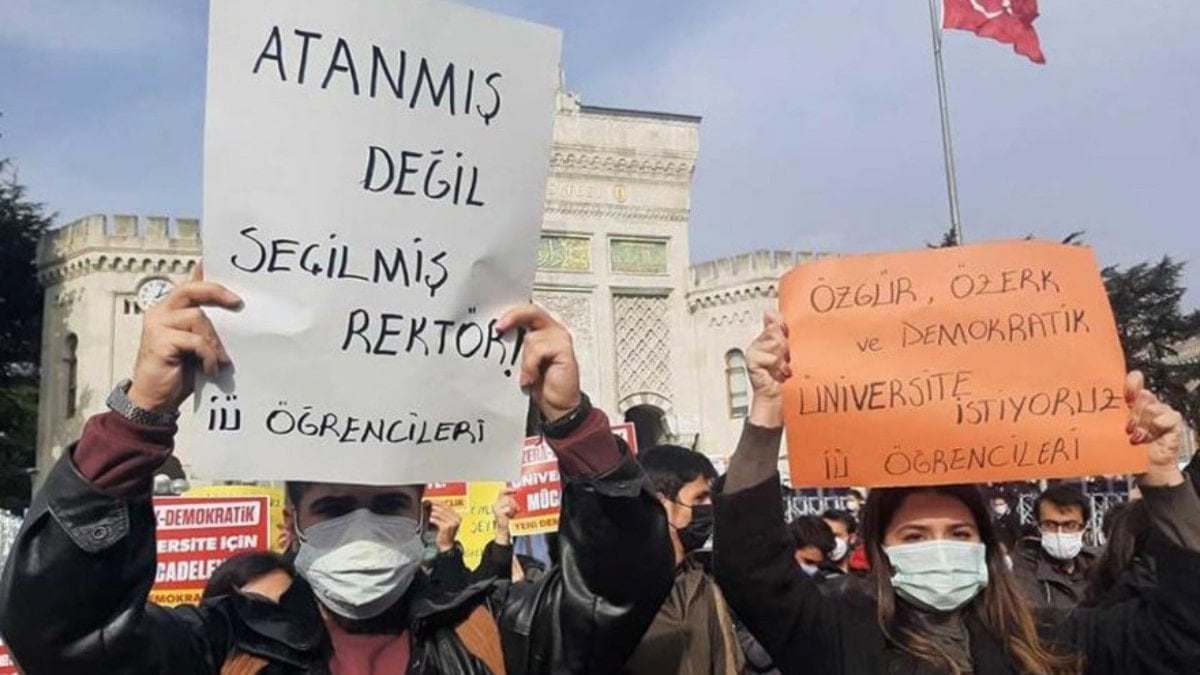 ATANMIŞ
DEĞİL
SEÇİLMİŞ
REKTÖR!
İÜ ÖĞRENCİLERİ
ÖZGÜR, ÖZERK
ve DEMOKRATİK
ÜNİVERSİTE İSTİYORUZ
İÜ ÖĞRENCİLERİ
-DEMOKRATİK
ERSİTE İÇİN
CADELEYE
DEMOKRA
ÜNİVER
MÜC
YENİ DEM